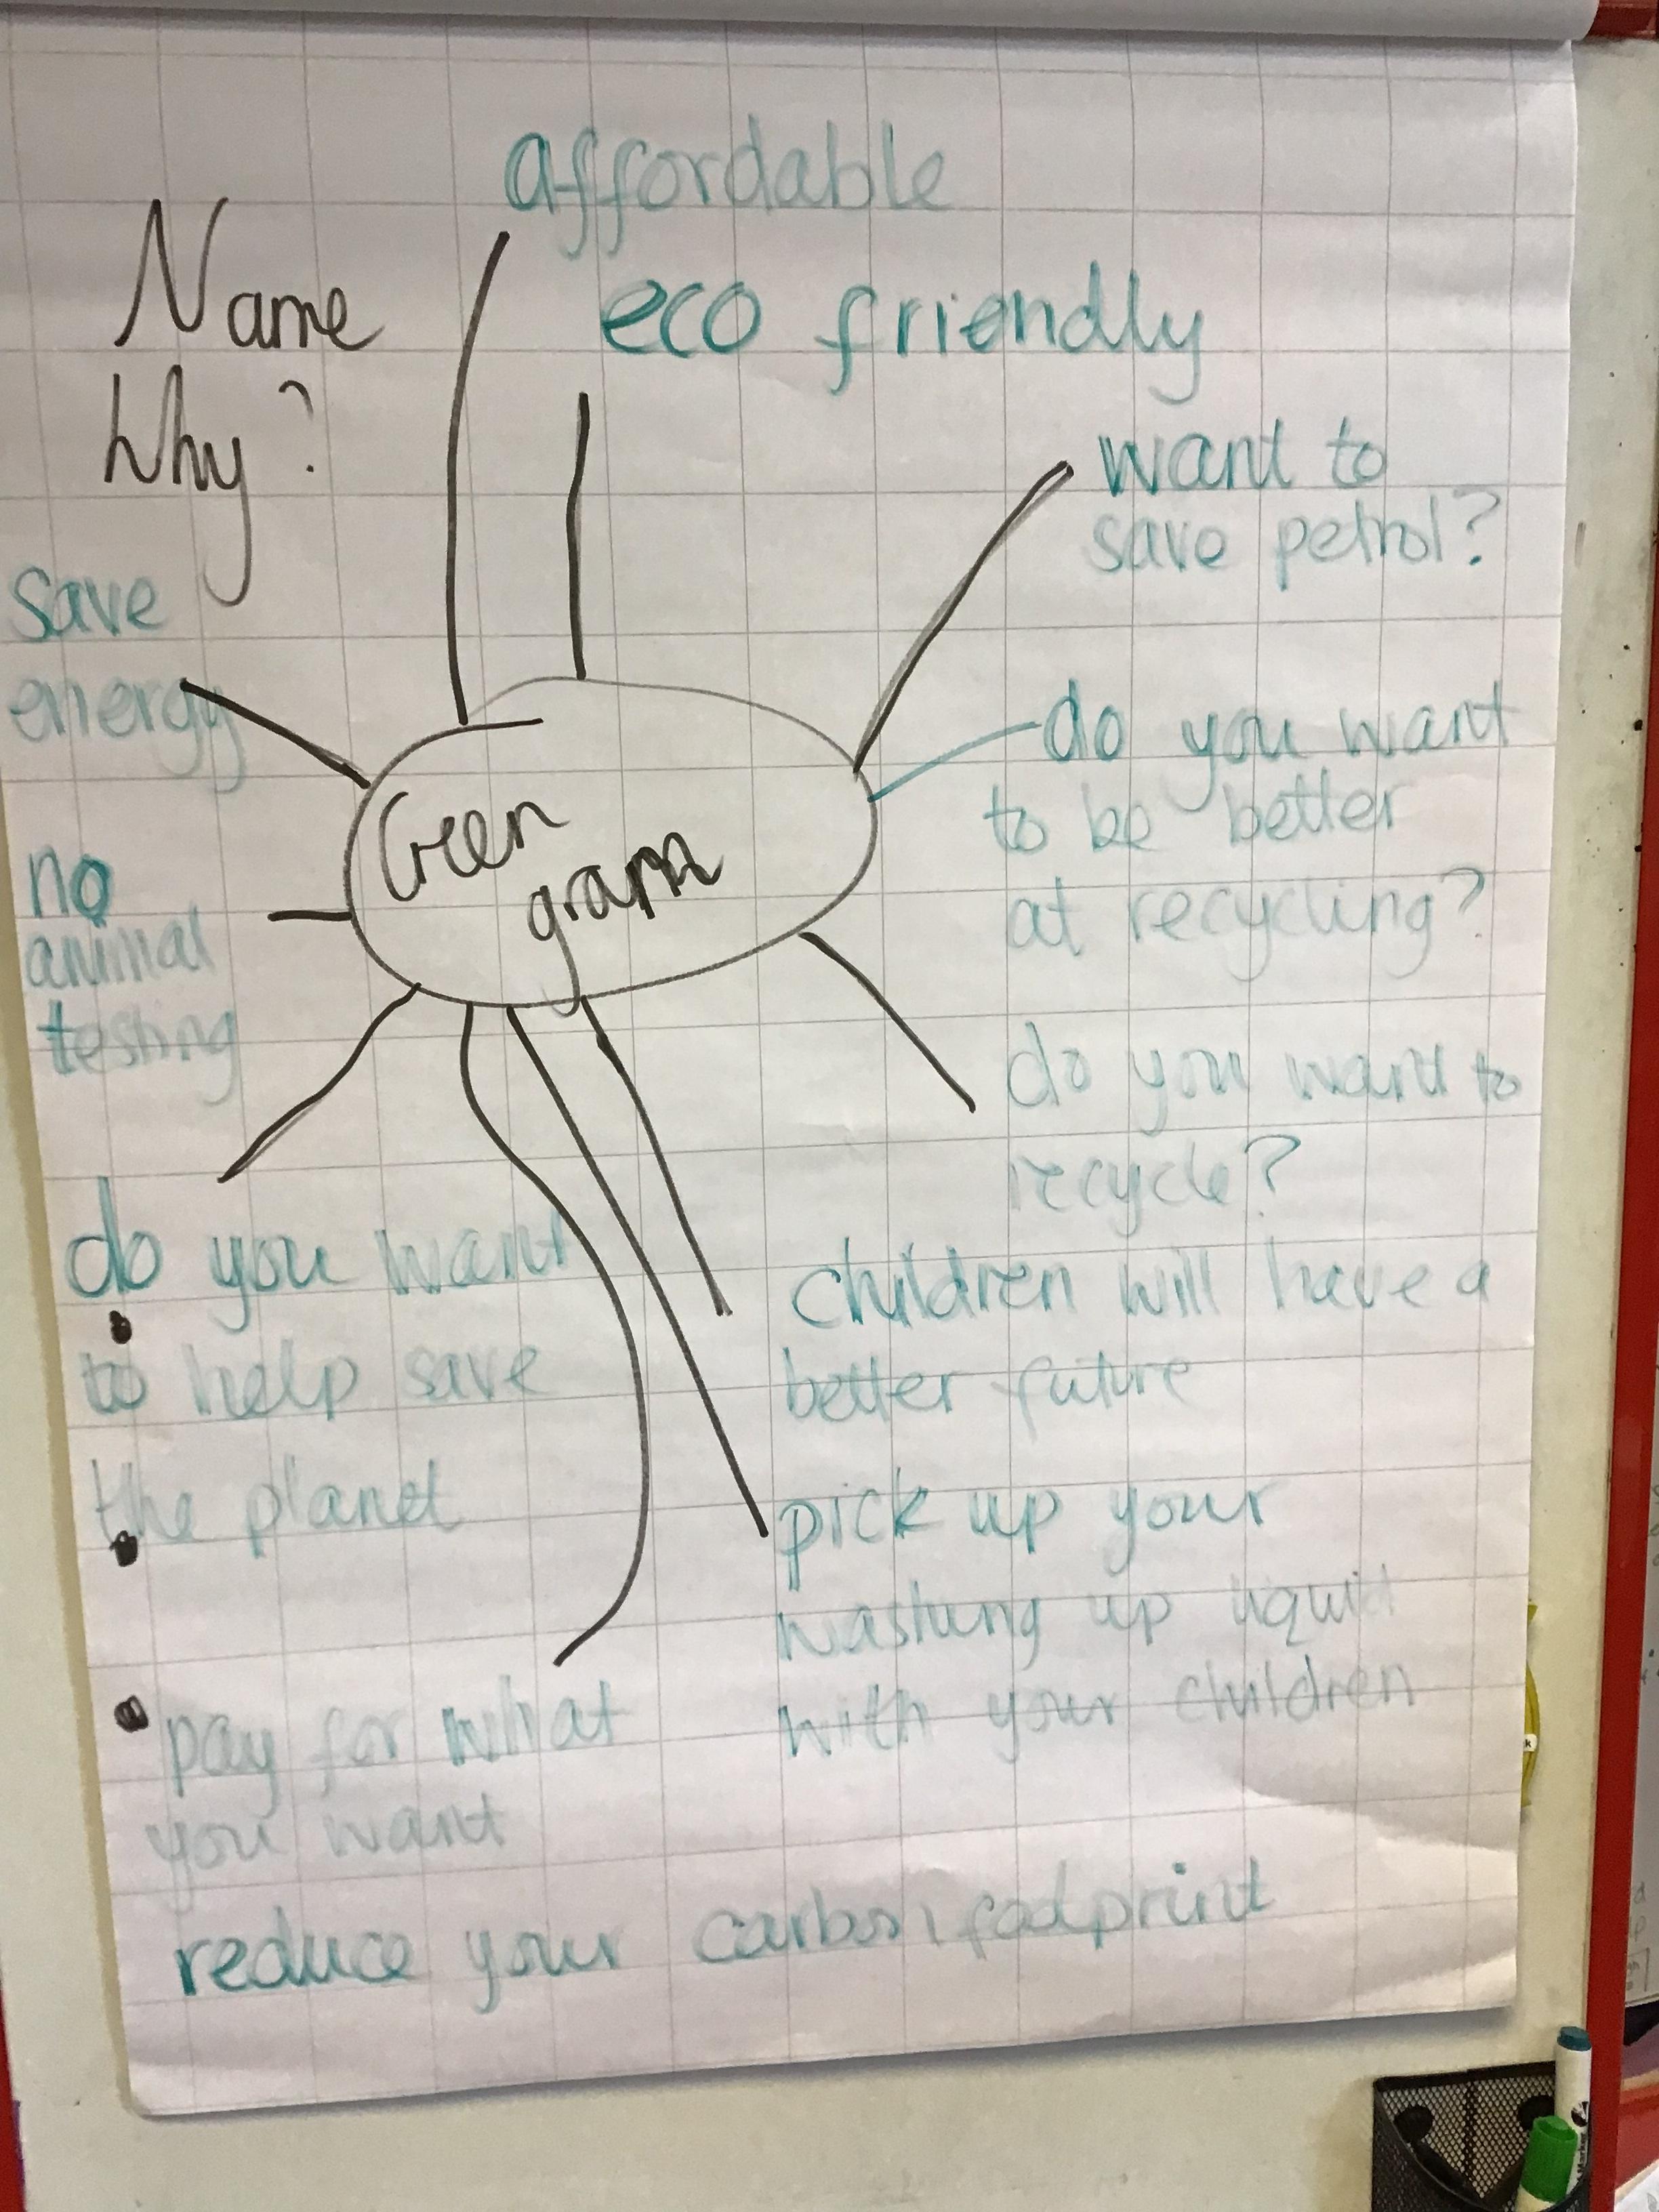 affordable
eco friendly
Name
Why?
want to
save petrol?
save
energy
do you want
to be better
at recycling?
Green
grams
no
animal
testing
do you want to
recycle?
do you want
to help save
the planet
children will have a
better future
pick up your
washing up liquid
with your children
pay for what
you want
reduce your carbon footprint